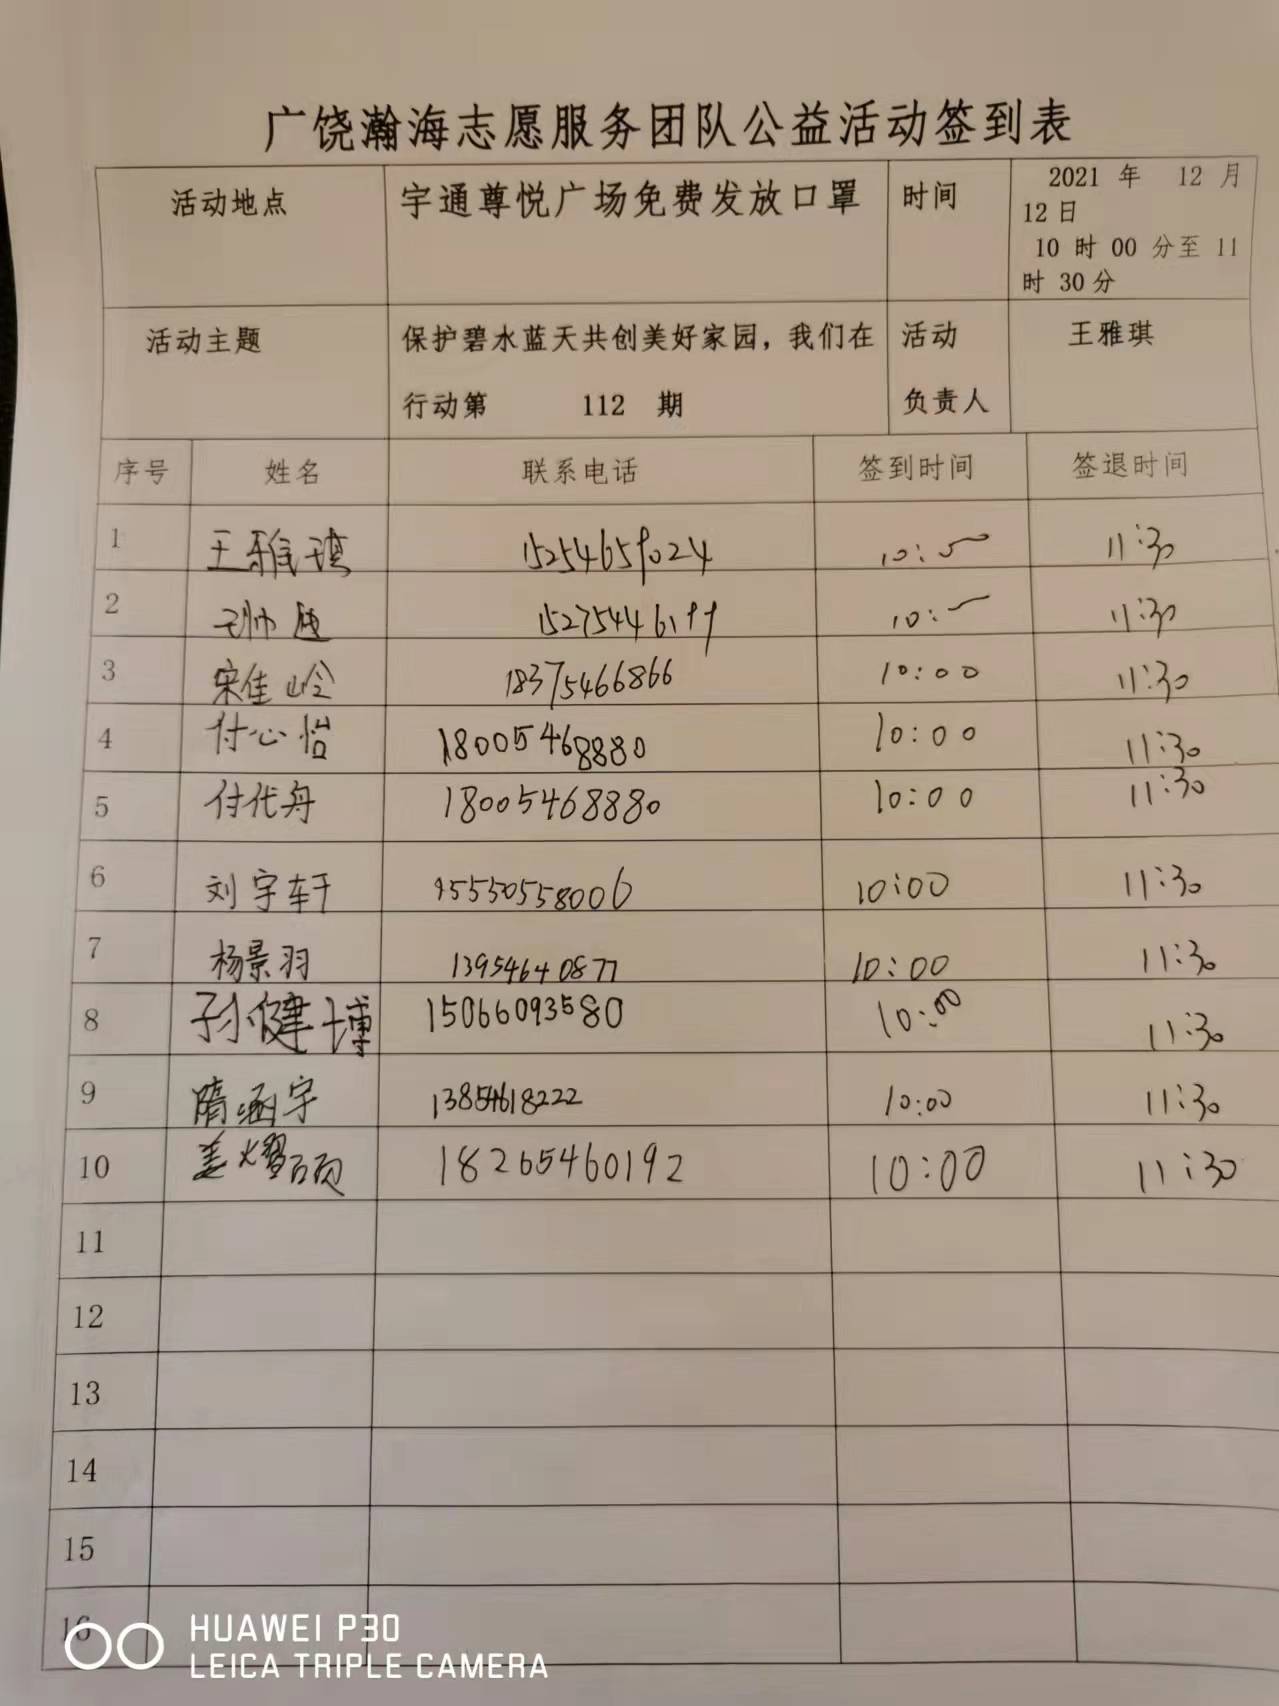 广饶瀚海志愿服务团队公益活动签到表
活动地点 宇通尊悦广场免费发放口罩 时间 2021 年 12 月
12日
10 时 00 分至 11
时 30分
活动主题 保护碧水蓝天共创美好家园，我们在 活动 王雅琪
行动第 112 期 负责人
序号 姓名 联系电话 签到时间 签退时间
1 王雅琪 15254659024 10: 11:30
2 15275446199 10: 11:30
3 宋佳岭 18375466866 10:00 11:30
4 付心怡 18005468880 10:00 11:30
5 付代舟 18005468880 10:00 11:30
6 刘宇轩 15550558006 10:00 11:30
7 杨景羽 13954640877 10:00 11:30
8 孙健博 15066093580 10:00 11:30
9 隋涵宇 13854618222 10:00 11:30
10 姜耀硕 18265460192 10:00 11:30
11
12
13
14
15
16
HUAWEI P30
LEICA TRIPLE CAMERA